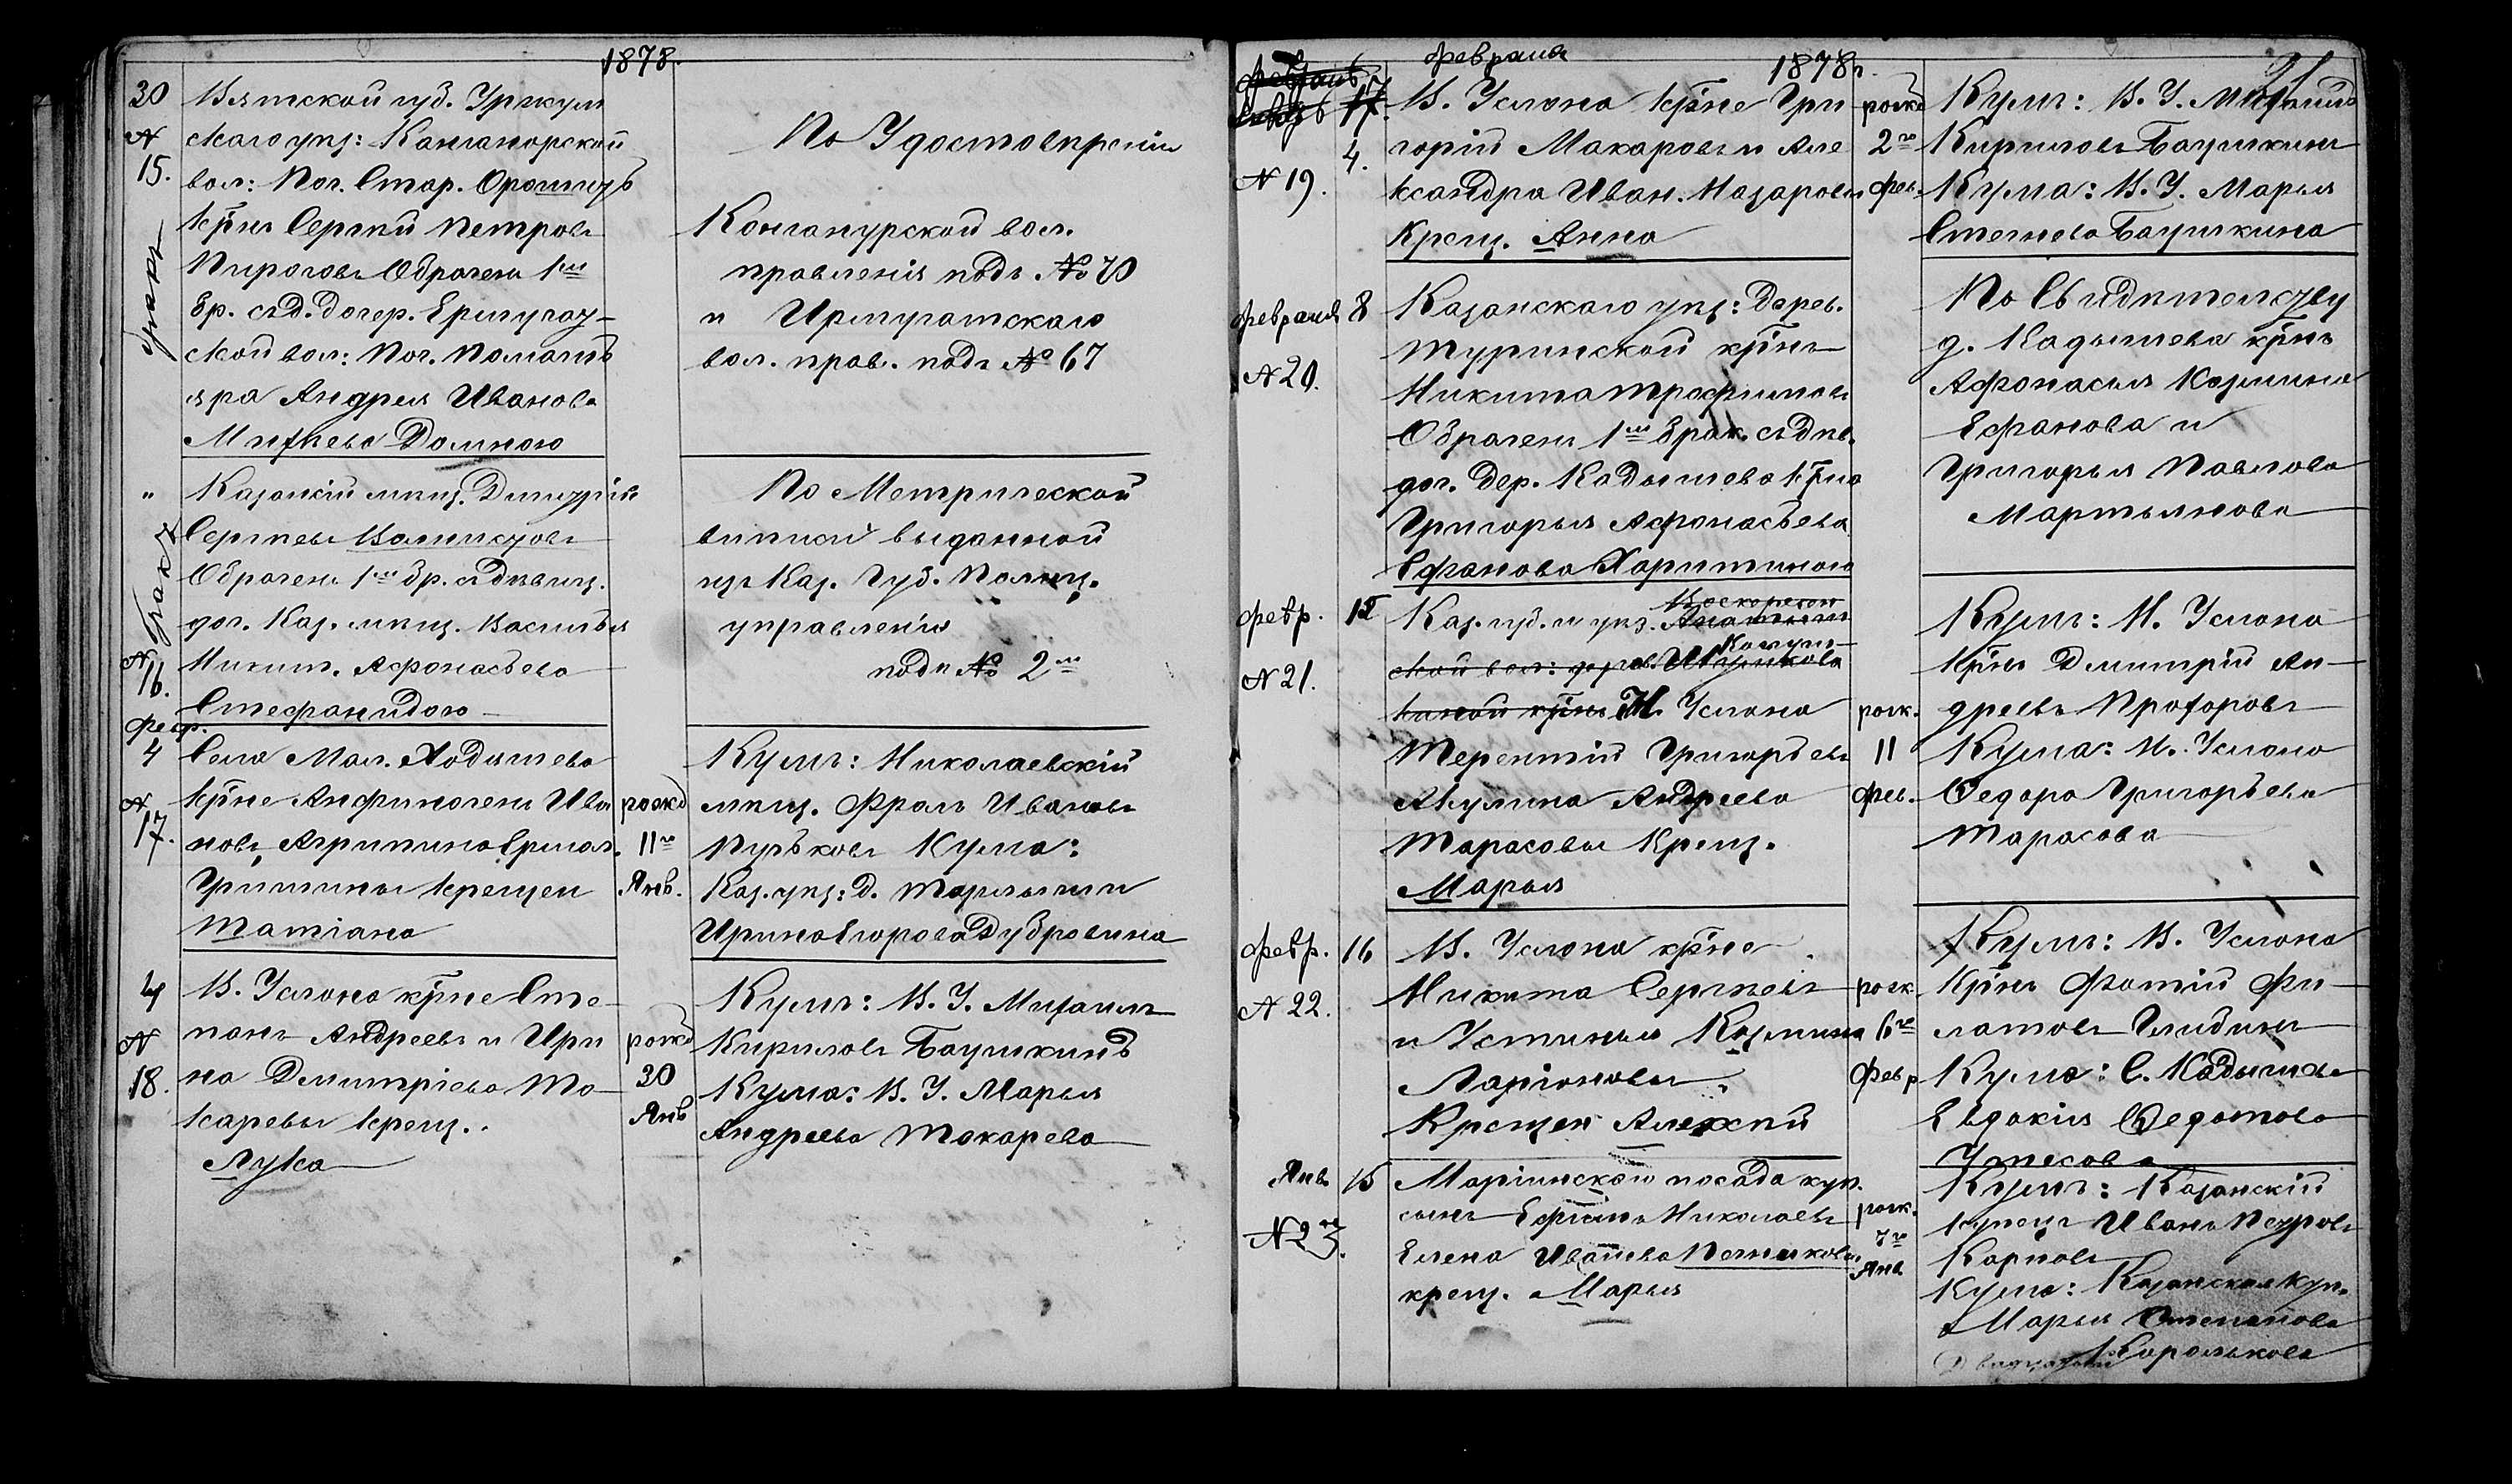 1878.
30
N
15.
бракъ
Вятской губ. Уржум
скаго уѣз: Канганорской
вол: Поч. Стар. Орошигъ
кр̄нъ Сергѣй Петровъ
Пироговъ Обрачень 1мъ
бр. съ д. дочер. Ермучаш-
ской вол: Поч. Помашъ
яра Андрея Иванова
Михѣева Домною
По Удостовѣренію
Конганурской вол.
правленія подъ № 70
и Ирмучашскаго
вол. прав. подъ № 67
"
бракъ
N
16.
Казанскій мѣщ. Дмитрій
Сергѣевъ
Обрачень 1мъ бр. съ дѣвиц.
доч. Каз. мѣщ. Василья
Никит. Афонасьева
Стефанидою
По Метрической
выписи выданной
изъ Каз. Губ. Полиц.
управленія
подъ № 2мъ
февр.
4
N
17.
Села Мал. Ходяшева
кр̄не Анфиногенъ Ива
новъ, Агрипина Ермол.
Гришины крещен
Татіана
рожд
11го
Янв.
Кумъ: Николаевскій
мѣщ. Фролъ Ивановъ
Пузѣковъ Кума:
Каз. уѣз: д.
Ирина Егорова Дубровина
4
N
18.
В. Услона кр̄не Сте
панъ Андреевъ и Ири
на Дмитріева То-
каревы крещ.
Лука
рожд
30
Янв
Кумъ: В. У. Михаилъ
Кириловъ Баушкинъ
Кума: В. У. Марья
Андреева Токарева
февраля
1878г.
21
17.
4.
N 19.
В. Услона кр̄не Гри
горій Макаровъ и Але
ксандра Иван. Назаровы
Крещ. Анна
рожд
2го
фев.
Кумъ: В. У. Михаилъ
Кириловъ Баушкинъ
Кума: В. У. Марья
Степнева Баушкина
февраля 8
N 20.
Казанскаго уѣз: Дерев.
Туринской кр̄нъ
Никита Трофимовъ
Обрачень 1мъ брак. съ дѣв.
доч. Дер. Кадышева кр̄на
Григорья Афонасьева
Ефанова Харитиною
По Свидѣтельству
д. Кадышева кр̄нъ
Афонасья Козмина
Ефанова и
Григорья Павлова
Мартьянова
февр. 12
N 21.
Каз. губ. и уѣз.
ской вол: дер.
кр̄нъ Н. Услона
Терентій Григорьевъ
Акулина Андреева
Тарасовы Крещ.
Марья
рож.
11
фев.
Кумъ: Н. Услона
кр̄нъ Дмитрій Ан-
дреевъ Прохоровъ
Кума: Н. Услона
Федора Григорьева
Тарасова
февр. 16
N 22.
В. Услона кр̄не
Никита Сергѣевъ
и Устинья Козмина
Ларіоновы
Крещен Алексѣй
рож.
6го
февр
Кумъ: В. Услона
кр̄нъ Фотій Фи-
латовъ Глидинъ
Кума: С. Кадышева
Евдокія Федотова
Утесова
Янв 15
N 23.
Маріинскаго посада куп.
сынъ Ефимъ Николаевъ
Елена Иванова
крещ. Марья
рож.
7го
Янв
Кумъ: Казанскій
купецъ Иванъ Петровъ
Карповъ
Кума: Казанская куп.
Марья Степанова
Королькова